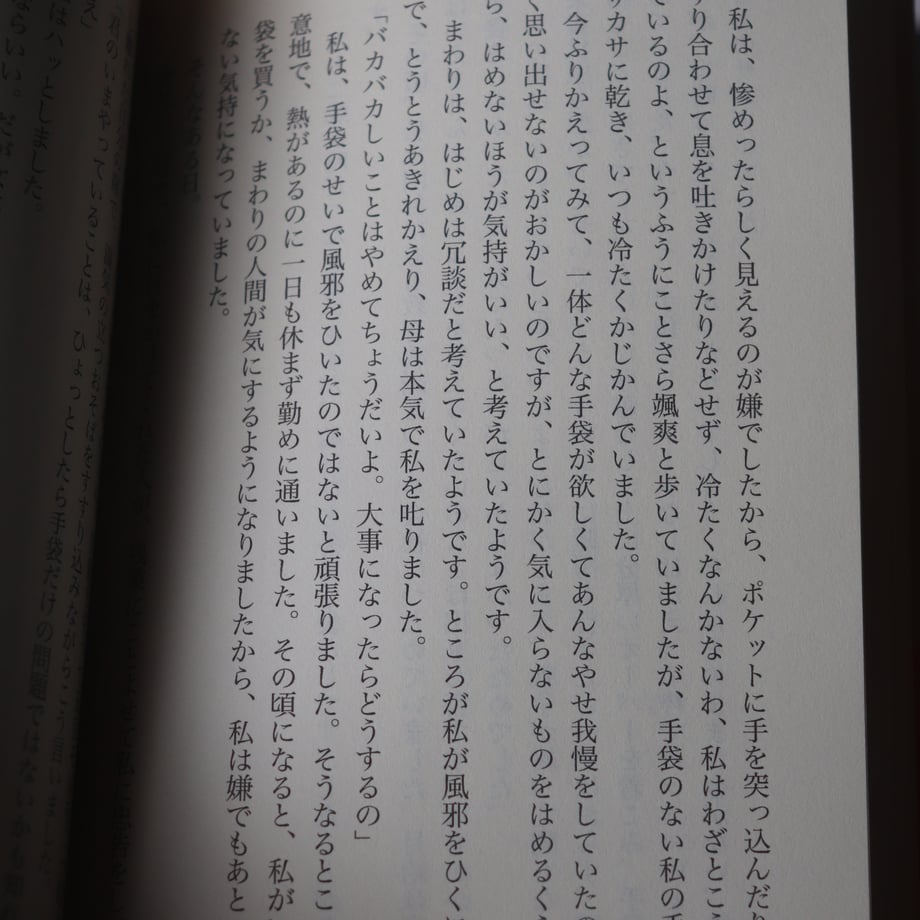 私は、惨めったらしく見えるのが嫌でしたから、ポケットに手を突っ込んだり
すり合わせて息を吐きかけたりなどせず、冷たくなんかないわ、私はわざとこう
ているのよ、というふうにことさら颯爽と歩いていましたが、手袋のない私の手
サカサに乾き、いつも冷たくかじかんでいました。
今ふりかえってみて、一体どんな手袋が欲しくてあんなやせ我慢をしていたの
く思い出せないのがおかしいのですが、とにかく気に入らないものをはめるく
ら、はめないほうが気持がいい、と考えていたようです。
まわりは、はじめは冗談だと考えていたようです。ところが私が風邪をひくに
で、とうとうあきれかえり、母は本気で私を叱りました。
「バカバカしいことはやめてちょうだいよ。大事になったらどうするの」
私は、手袋のせいで風邪をひいたのではないと頑張りました。そうなるとこ
意地で、熱があるのに一日も休まず勤めに通いました。その頃になると、私が
袋を買うか、まわりの人間が気にするようになりましたから、私は嫌でもあと
ない気持になっていました。
そんなある日、
のいまやっていることは、ひょっとしたら手袋だけの問題ではないかも
はハッとしました。